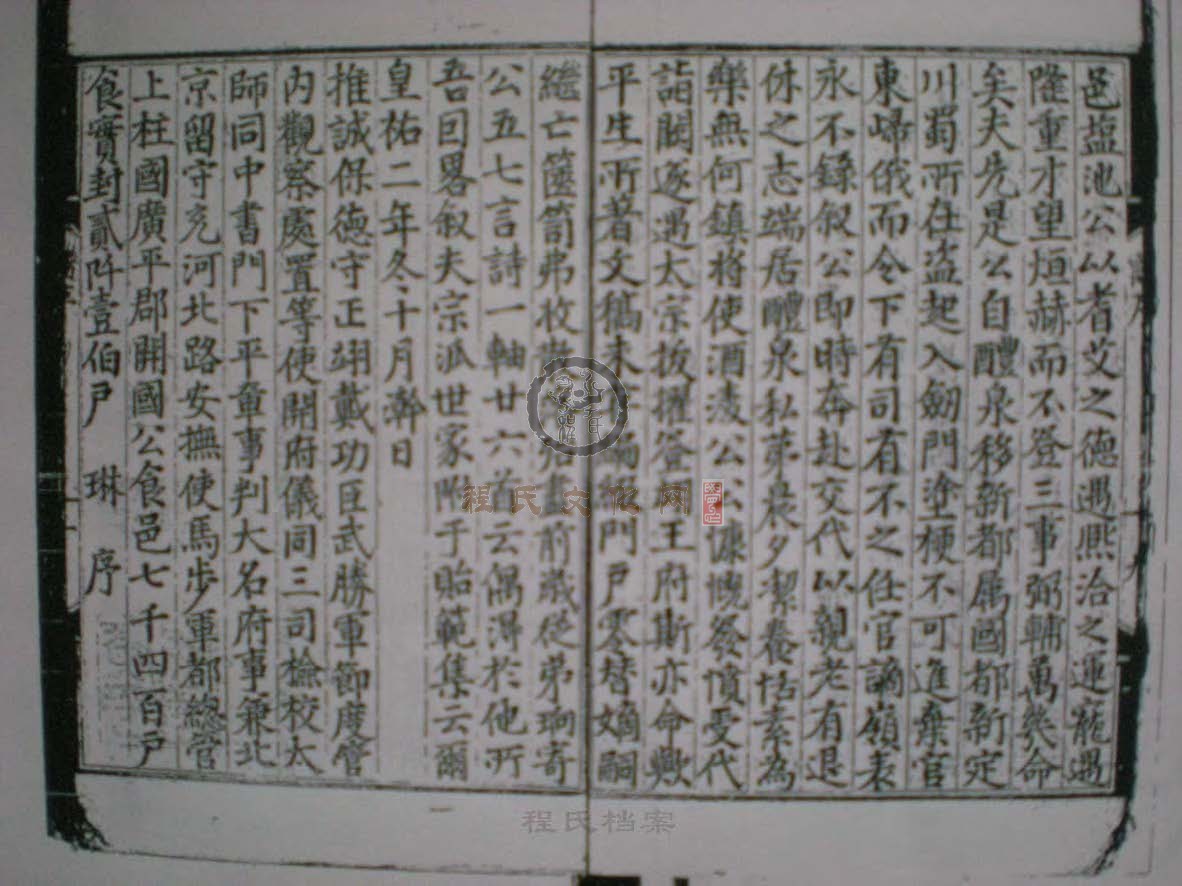 邑塩池公以耆艾之德遇熈洽之運寵遇
隆重才望烜赫而不登三事弼輔萬㡬命
矣夫先是公自醴泉移新都属國都新定
川蜀所在盗起入劔門塗梗不可進棄官
東歸俄而令下有司有不之任官謫嶺表
永不錄叙公即時奔赴交代以親老有退
休之志端居醴泉私弟晨夕潔養恬素為
樂無何鎮将使酒凌公公慷慨發憤受代
詣闕遂遇太宗拔擢登 王府斯亦命歟
平生所著文稿未 編門戸零替嫡嗣
繼亡篋笥弗收 畫前歳從弟珦寄
公五七言詩一軸廿六首云偶淂於他所
吾囙畧叙夫宗派世家附于貽範集云爾
皇祐二年冬十月澣日
推誠保德守正翊戴功臣武勝軍節度管
内觀察處置等使開府儀同三司檢校太
師同中書門下平章事判大名府事兼北
京留守充河北路安撫使馬步軍都緫管
上柱國廣平郡開國公食邑七千四百戸
食實封貳阡壹伯戸 琳 序
程氏文化网
程氏档案